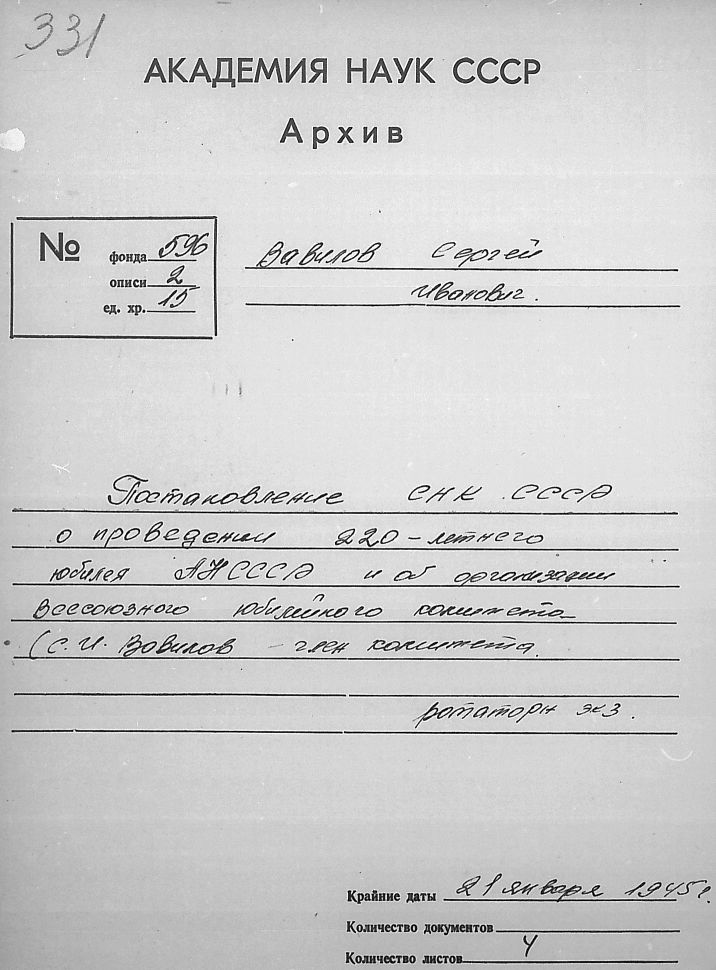 331
АКАДЕМИЯ НАУК СССР
Архив
№
фонда 596
описи 2
ед. хр. 15
Вавилов Сергей
Иванович.
Постановление СНК СССР
о проведении 220-летнего
юбилея АН СССР и об организации
Всесоюзного юбилейного комитета
(С. И. Вавилов - член комитета.
ротаторн экз.
Крайние даты 21 января 1945 г.
Количество документов
Количество листов 4